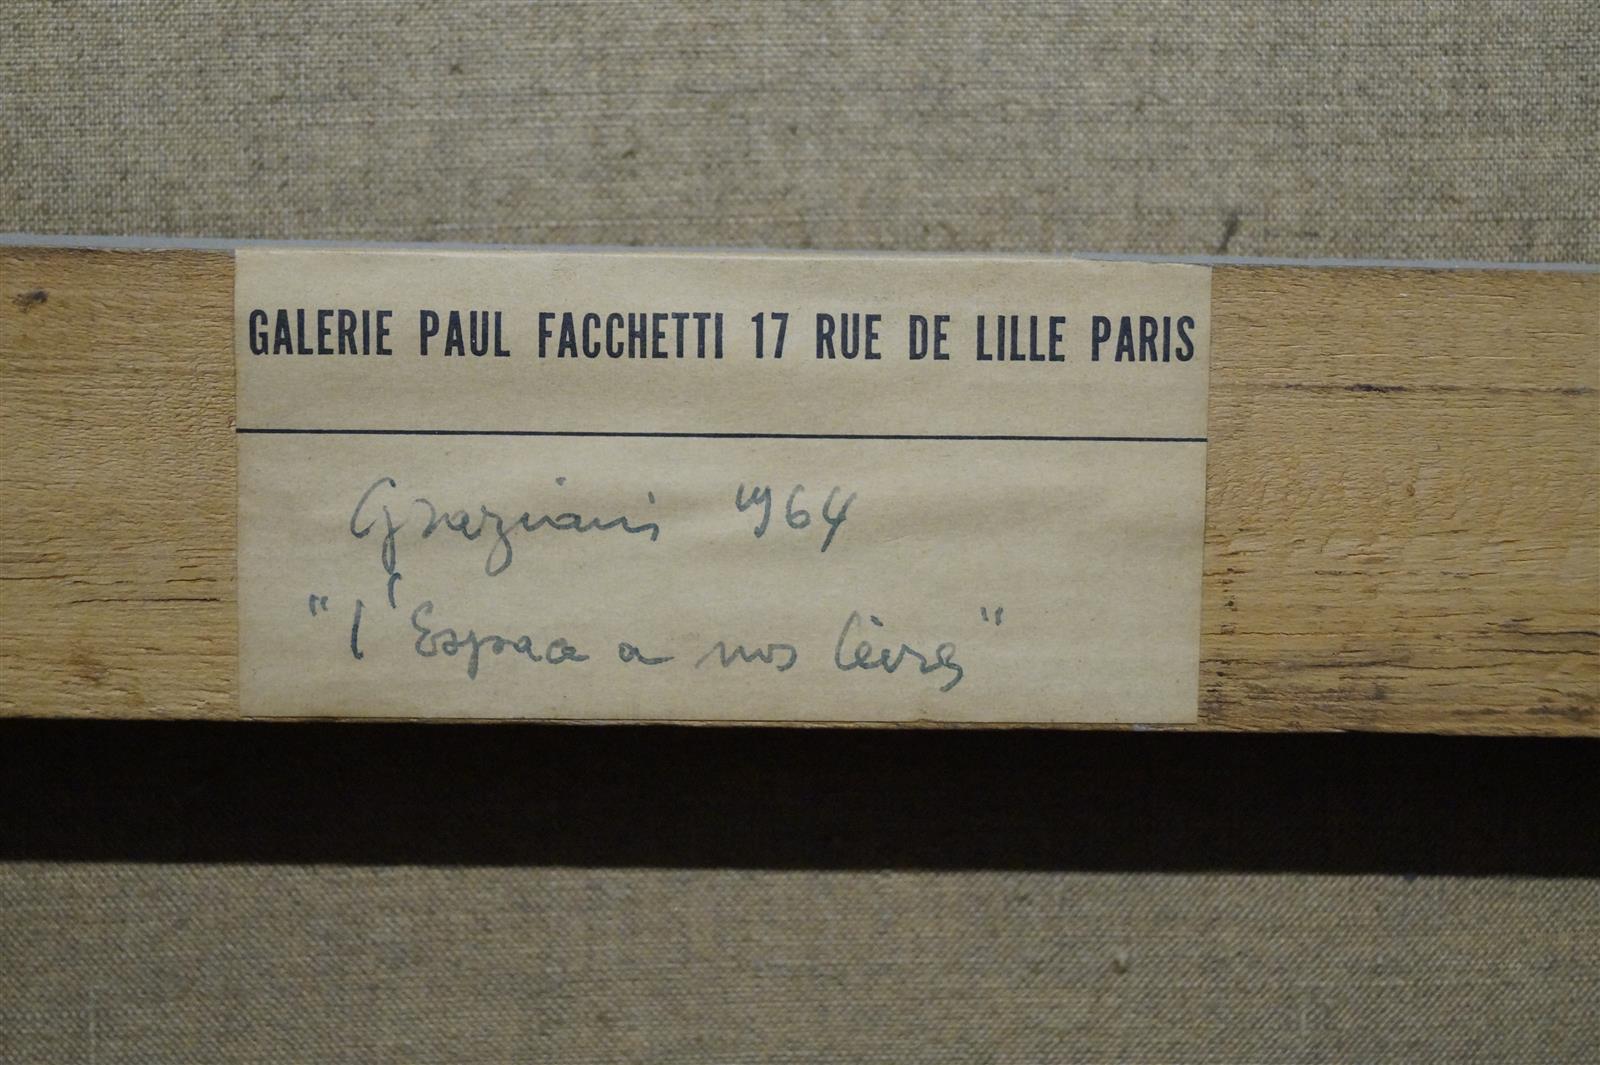 GALERIE PAUL FACCHETTI 17 RUE DE LILLE PARIS
Graziani 1964
"l'Espace a nos lèvres"